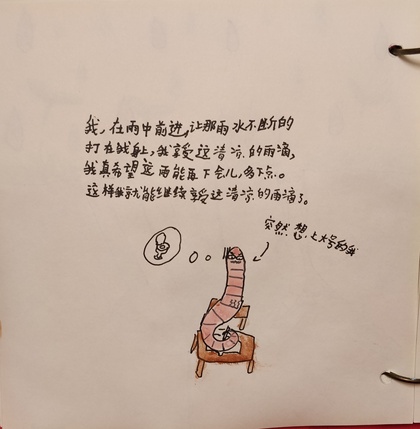 我，在雨中前进，让那雨水不断的
打在我身上，我享受这清凉的雨滴，
我真希望这雨能再下会儿，多下点。
这样我就能继续享受这清凉的雨滴了。
突然想上大号的我